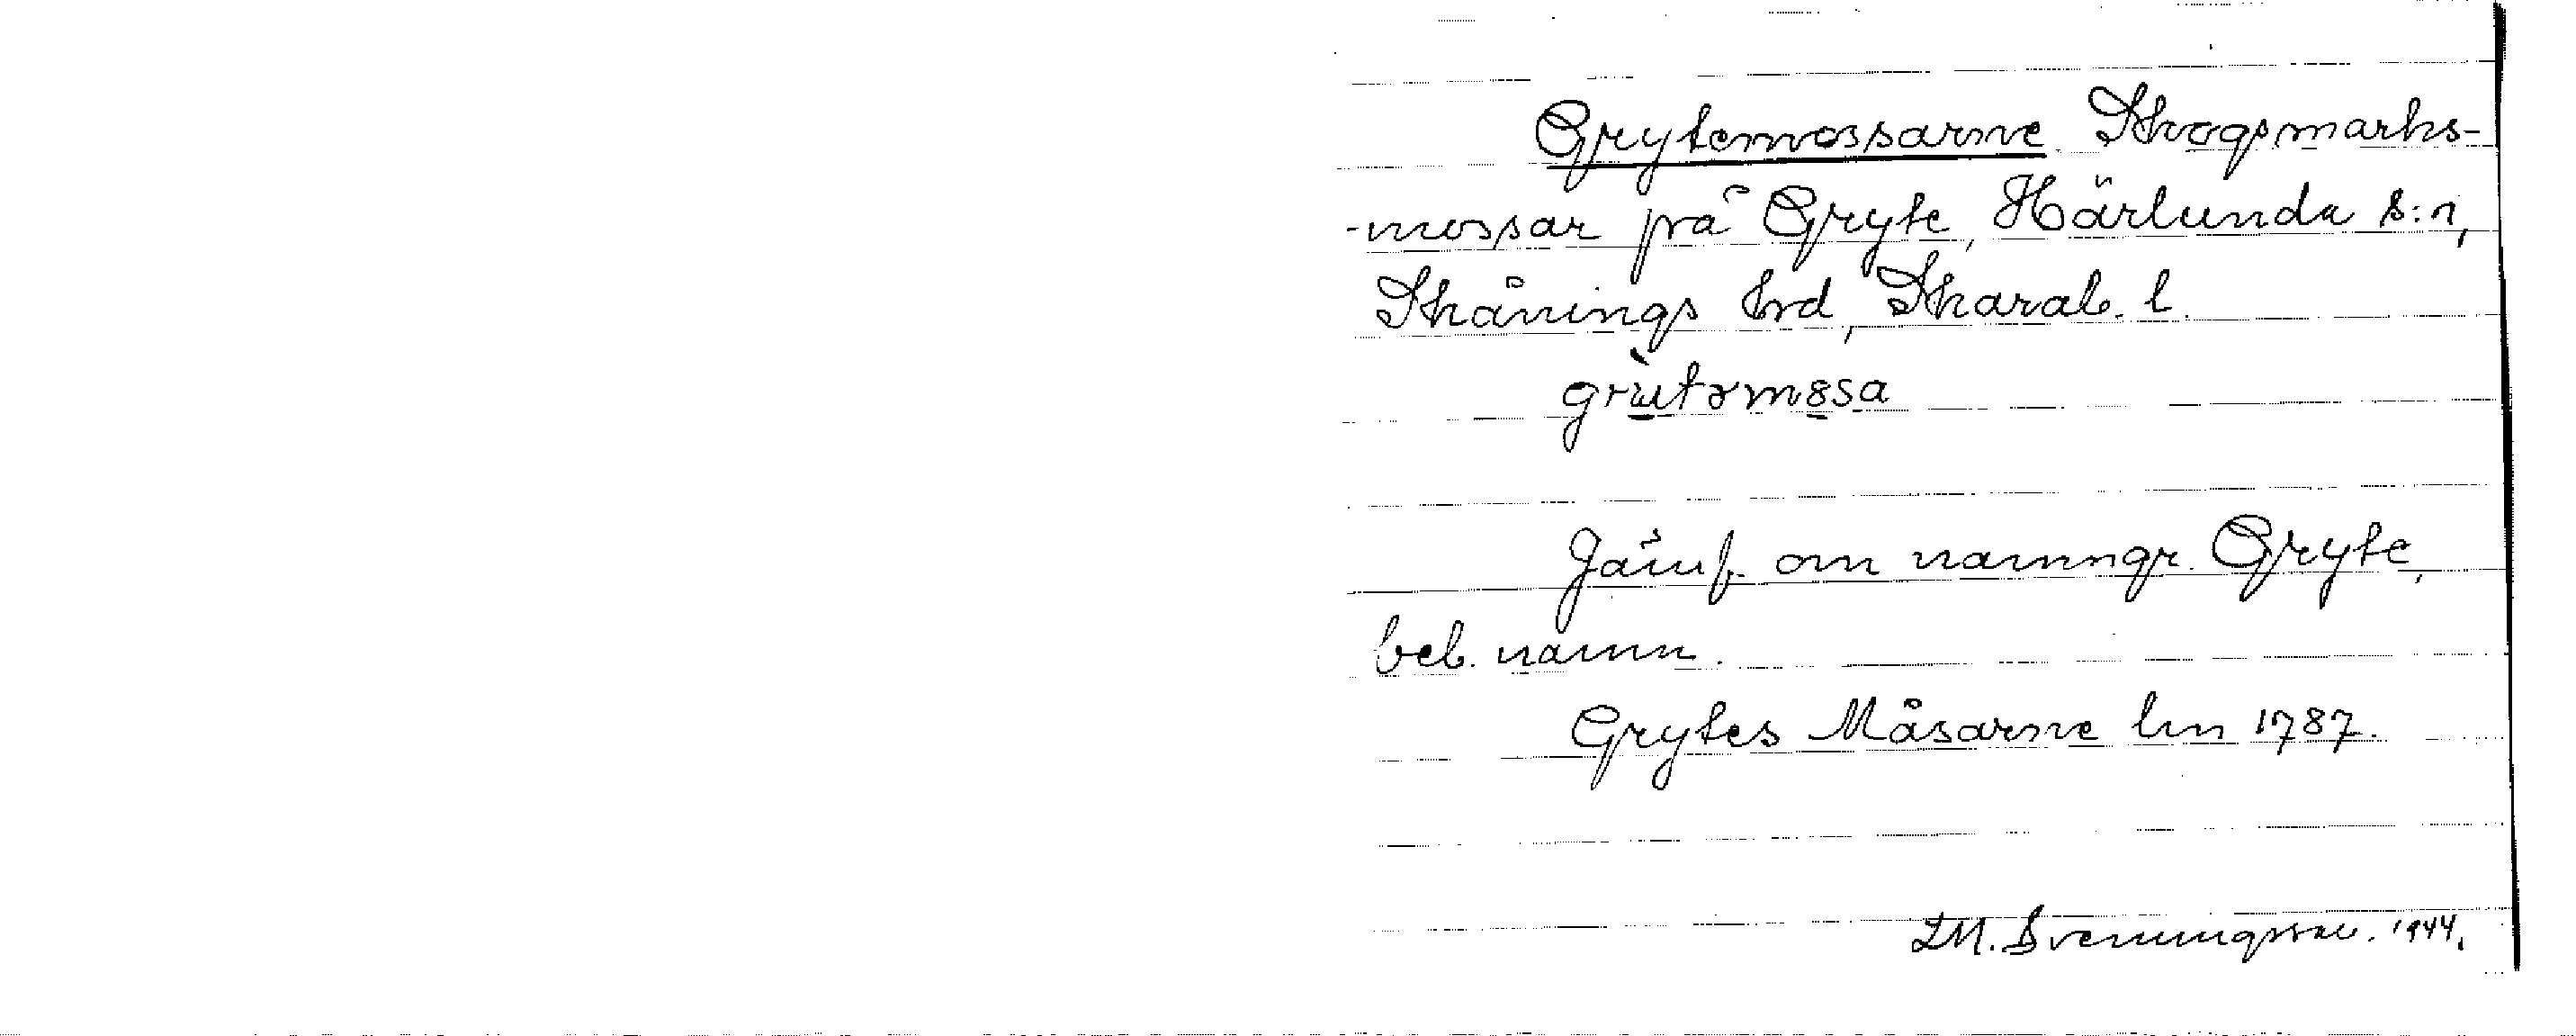 Grytemossarne Skogsmarks-
-mossar på Gryte, Härlunda s:n,
Skånings hrd, Skarab. l.
grùtəm8sa
Jämf. om namngr. Gryte,
beb. namn.
Grytes Måsarne lm 1787.
LM. Svenungsson. 1944.